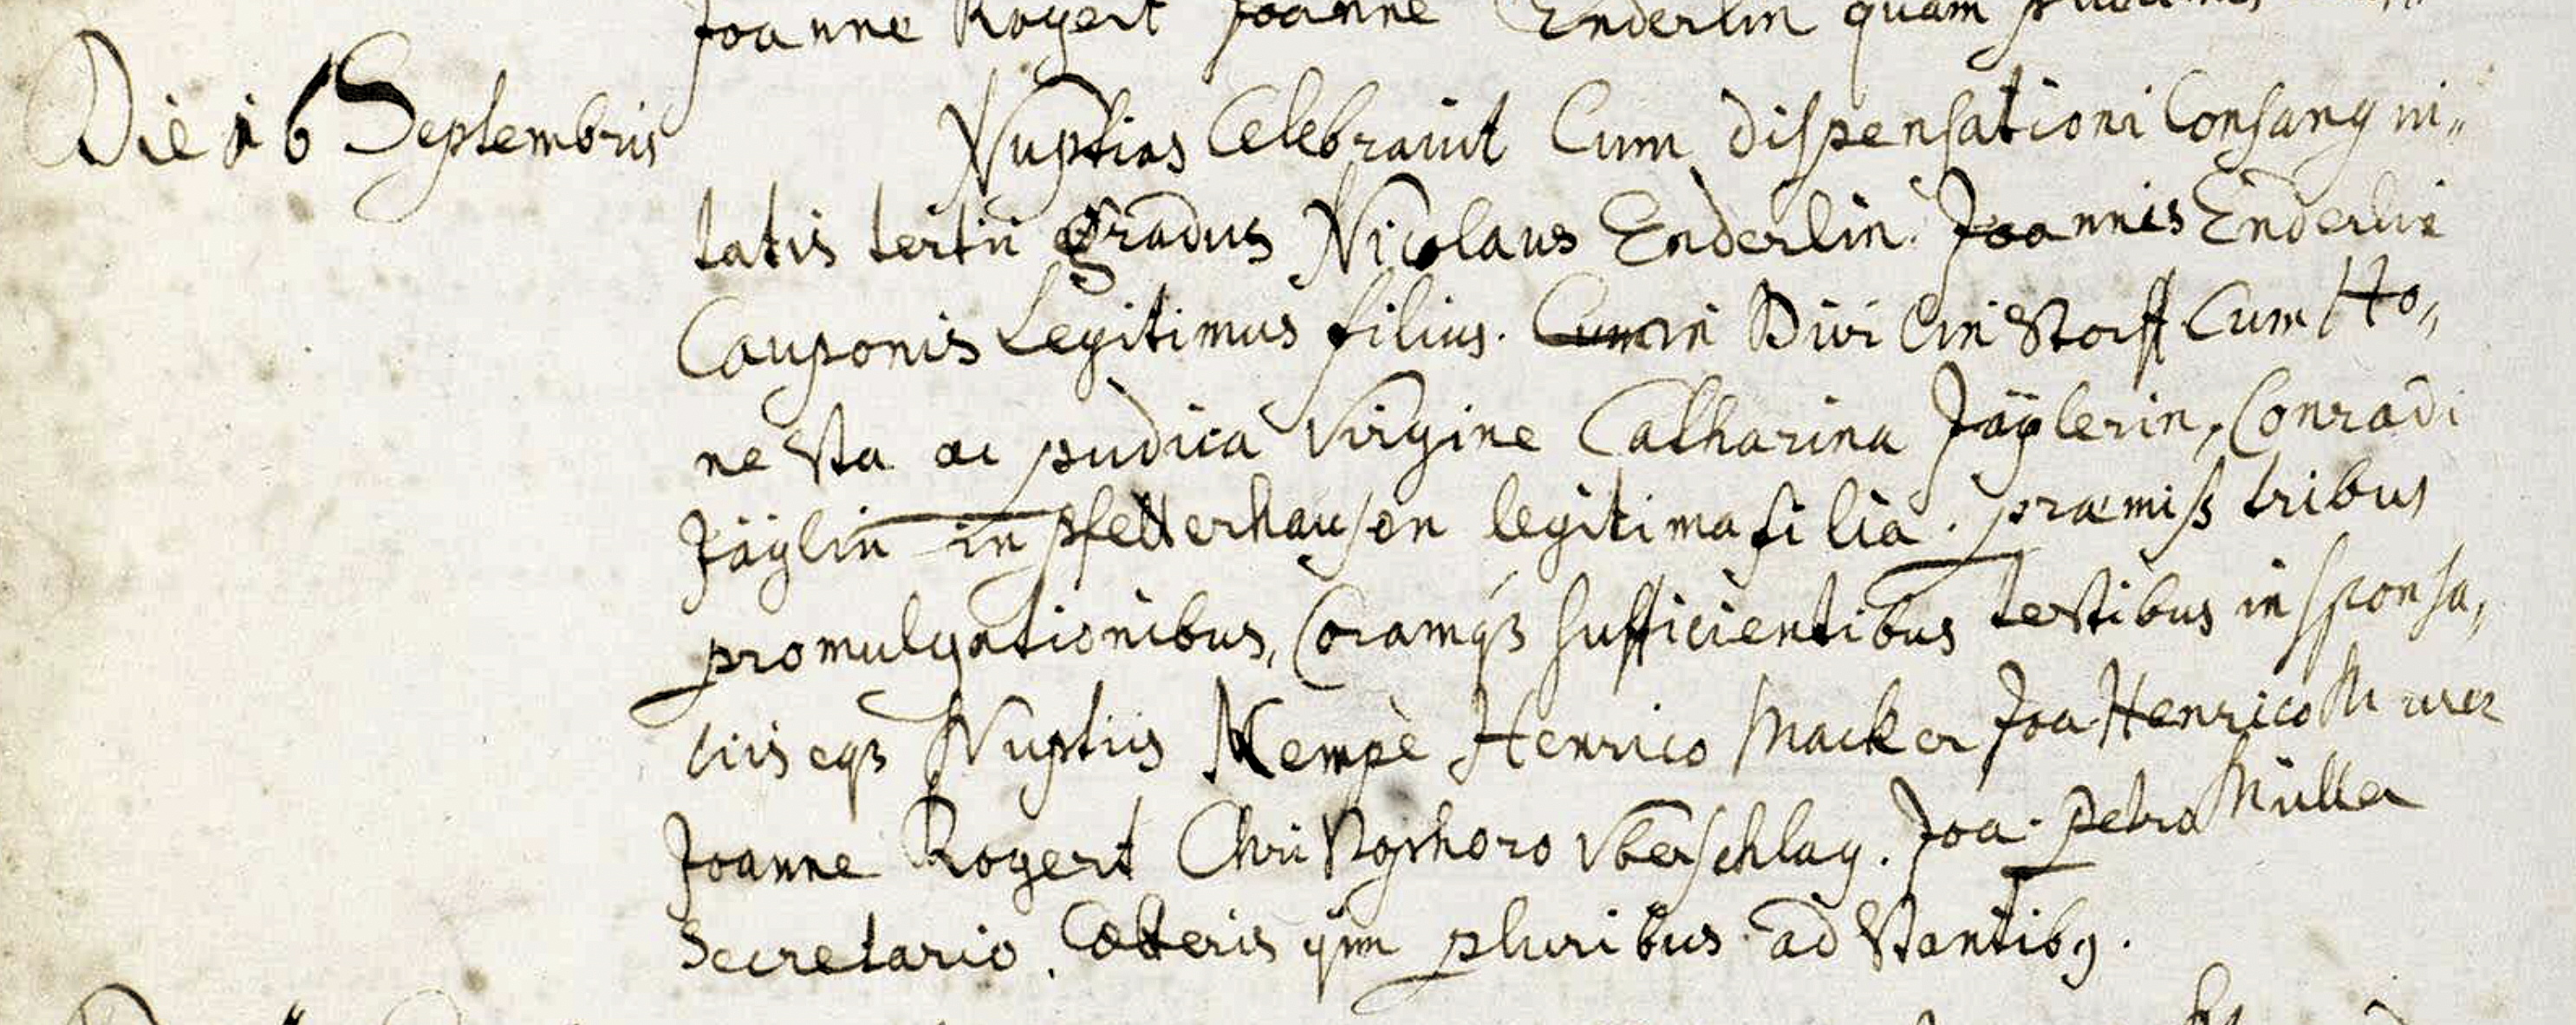 Joanne Rogert Joanne Enderlin quam
Die 16 Septembris Nuptias Celebrauit Cum dispensationi Consangui„
tatis tertii Gradus Nicolaus Enderlin. Joannis Enderlin
Cauponis Legitimus filius. Cum in Divi Cum Ho„
nesta ac pudica Virgine Catharina Jäglerin, Conradi
Jäglin in pfetterhausen legitima filia. præmiss tribus
promulgationibus, Coramq3 sufficientibus testibus in sponsa„
liis eq3 Nuptiis Nempè Henrico Macker Joa Henrico
Joanne Rogert Christophoro Vberschlag. Joa. Petro Müller
Secretario. Cæteris qm pluribus adstantib9.